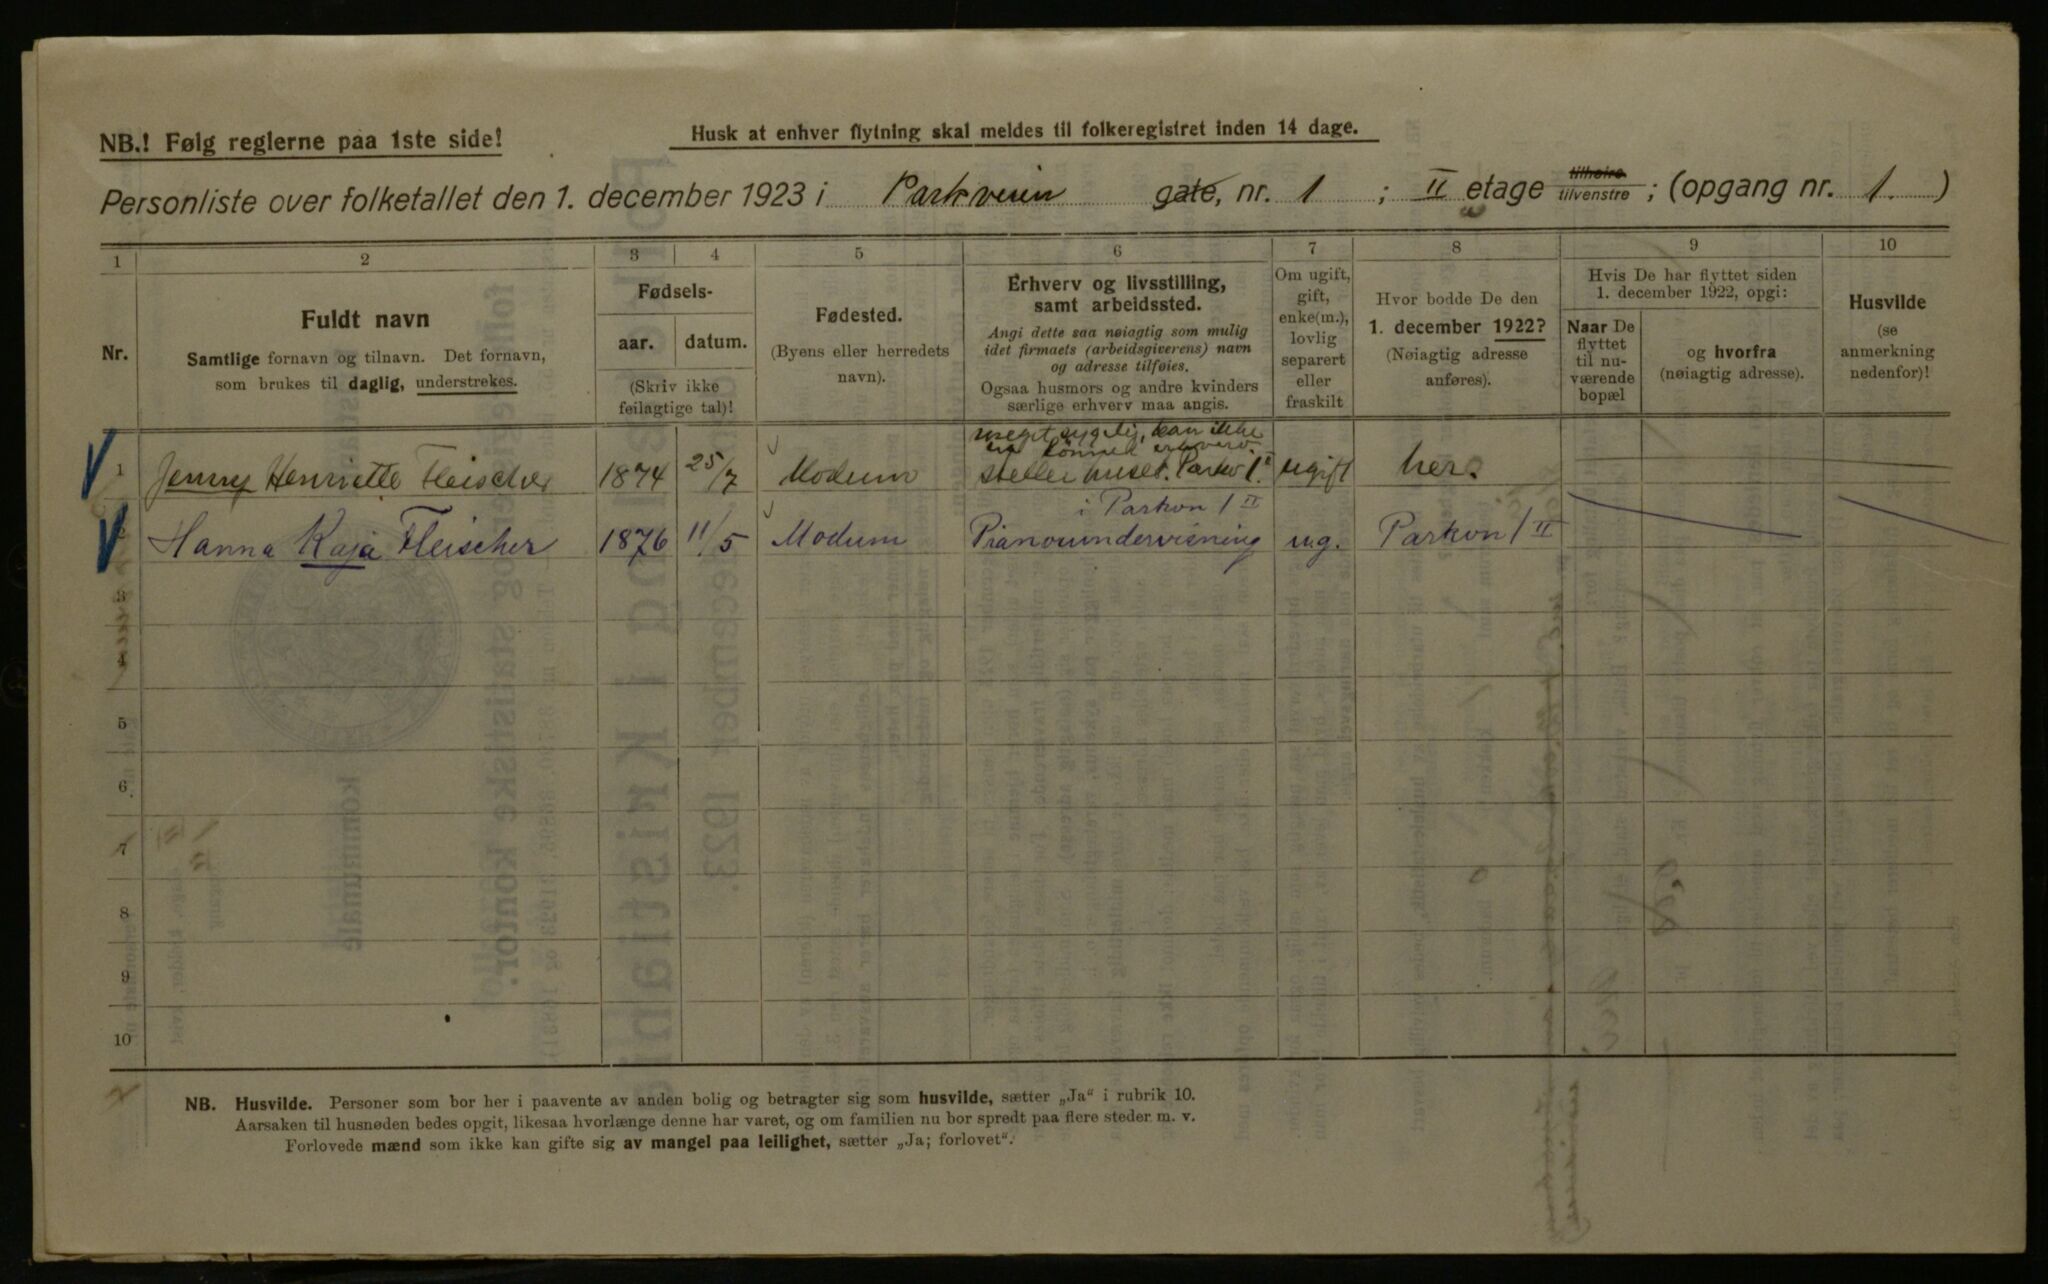 NB.! Følg reglerne paa 1ste side!
Husk at enhver flytning skal meldes til folkeregistret inden 14 dage.
Personliste over folketallet den 1. december 1923 i Parkveien gate, nr. 1 ; II etage tilhøire tilvenstre ; (opgang nr. 1. )
1 2 3 4 5 6 7 8 9 10
Nr.
Fuldt navn
Samtlige fornavn og tilnavn. Det fornavn,
som brukes til daglig, understrekes.
Fødsels-
aar. datum.
(Skriv ikke
feilagtige tal)!
Fødested.
(Byens eller herredets
navn).
Erhverv og livsstilling,
samt arbeidssted.
Angi dette saa nøiagtig som mulig
idet firmaets (arbeidsgiverens) navn
og adresse tilføies.
Ogsaa husmors og andre kvinders
særlige erhverv maa angis.
Om ugift,
gift,
enke(m.),
lovlig
separert
eller
fraskilt
Hvor bodde De den
1. december 1922?
(Nøiagtig adresse
anføres).
Hvis De har flyttet siden
1. december 1922, opgi:
Naar De
flyttet
til nu-
værende
bopæl
og hvorfra
(nøiagtig adresse).
Husvilde
(se
anmerkning
nedenfor)!
meget sygelig, kan ikke
lønnet erhverv.
1 Jenny Henriette Fleischer 1874 25/7 Modum steller huset. Parkv 1 II ugift her.
i Parkvn 1 II
2 Hanna Kaja Fleischer 1876 11/5 Modum Pianoundervisning ug. Parkvn 1 II
3
4
5
6
7
8
9
10
NB. Husvilde. Personer som bor her i paavente av anden bolig og betragter sig som husvilde, sætter „Ja“ i rubrik 10.
Aarsaken til husnøden bedes opgit, likesaa hvorlænge denne har varet, og om familien nu bor spredt paa flere steder m. v.
Forlovede mænd som ikke kan gifte sig av mangel paa leilighet, sætter „Ja; forlovet“.